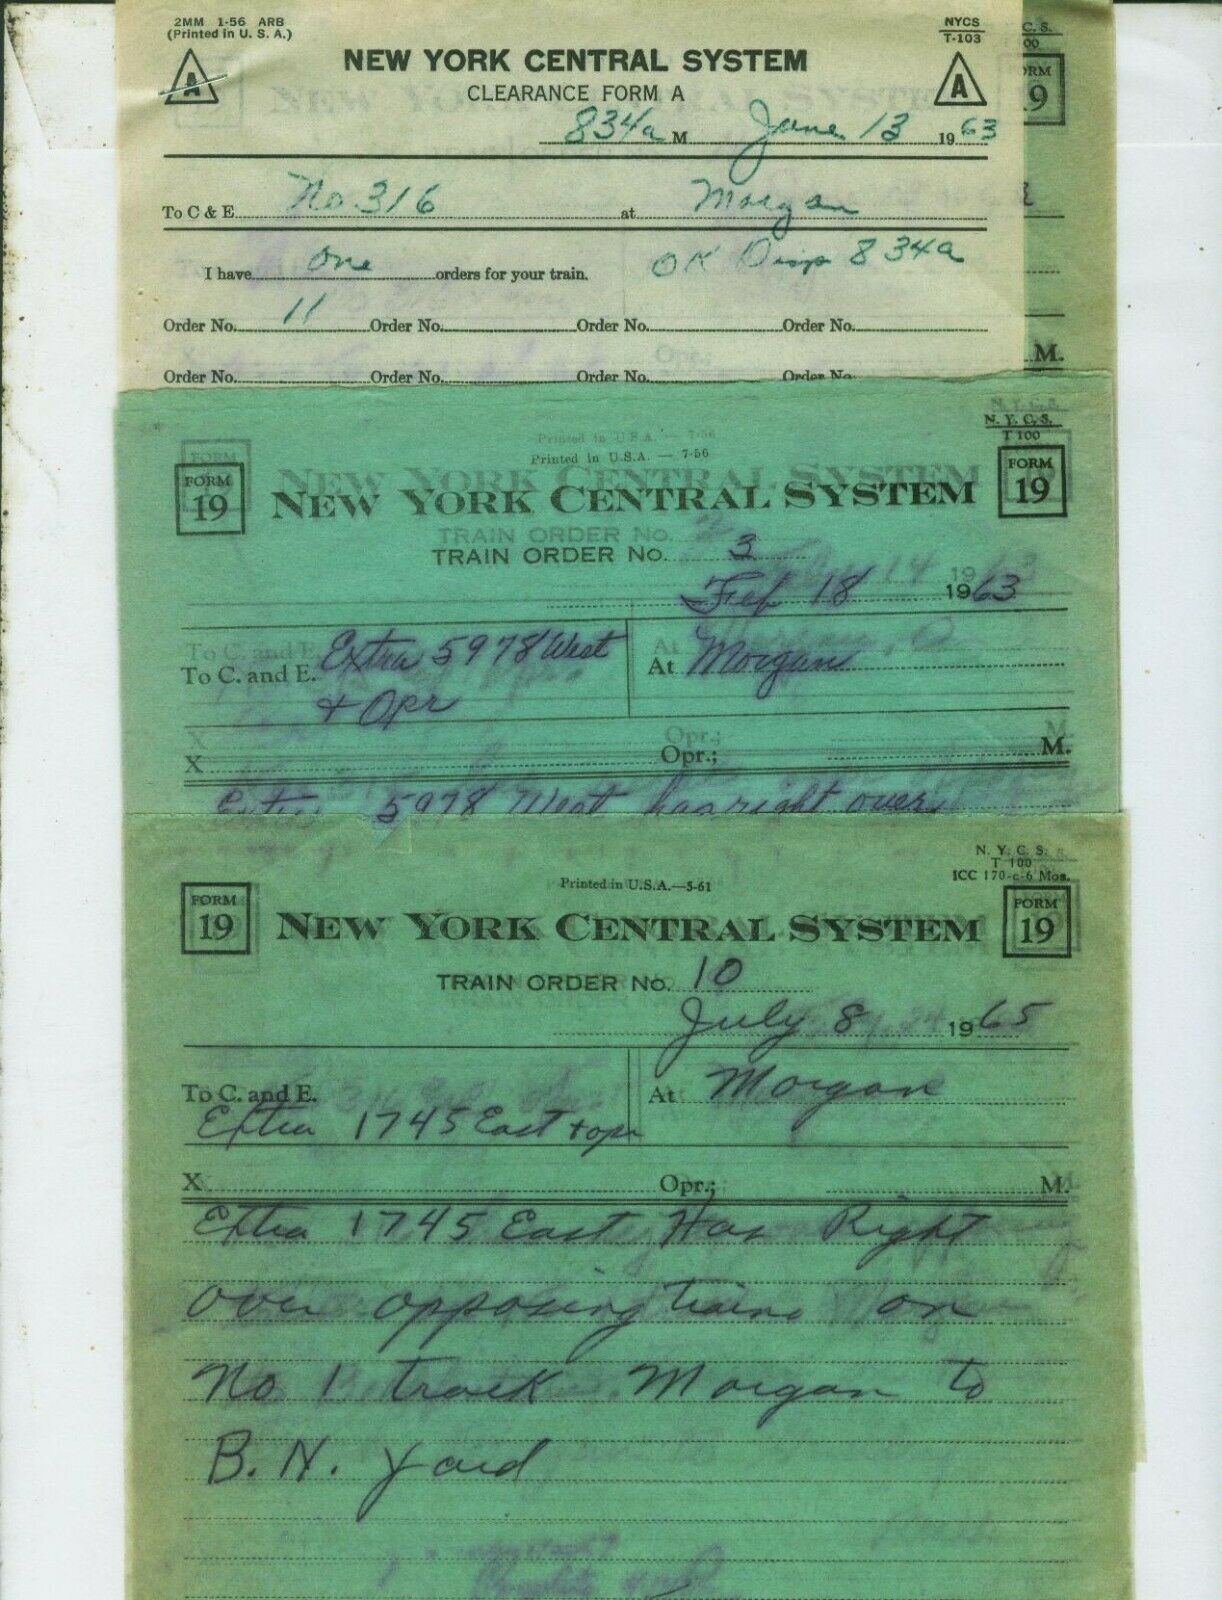 2MM 1-56 ARB
(Printed in U. S. A.)
NYCS
T-103
A
NEW YORK CENTRAL SYSTEM
A
CLEARANCE FORM A
834a M June 13 1963
To C & E No. 316 at Morgan
I have one orders for your train. OK Disp 834a
Order No. 11 Order No. Order No. Order No.
Order No. Order No. Order No. Order No.
C. S.
M.
N. Y. C. S.
T 100
Printed in U.S.A. — 7-56
FORM 19
NEW YORK CENTRAL SYSTEM
FORM 19
TRAIN ORDER No. 3
Feb 18 1963
To C. and E. Extra 5978 West At Morgan
+ Opr
X Opr.; M.
Extra 5978 West has right over
N. Y. C. S.
T 100
ICC 170-c-6 Mos.
Printed in U.S.A.—5-61
FORM 19
NEW YORK CENTRAL SYSTEM
FORM 19
TRAIN ORDER No. 10
July 8 1965
To C. and E. At Morgan
Extra 1745 East + opr
X Opr.; M.
Extra 1745 East Has Right
over opposing trains on
No 1 track Morgan to
B. N. Yard